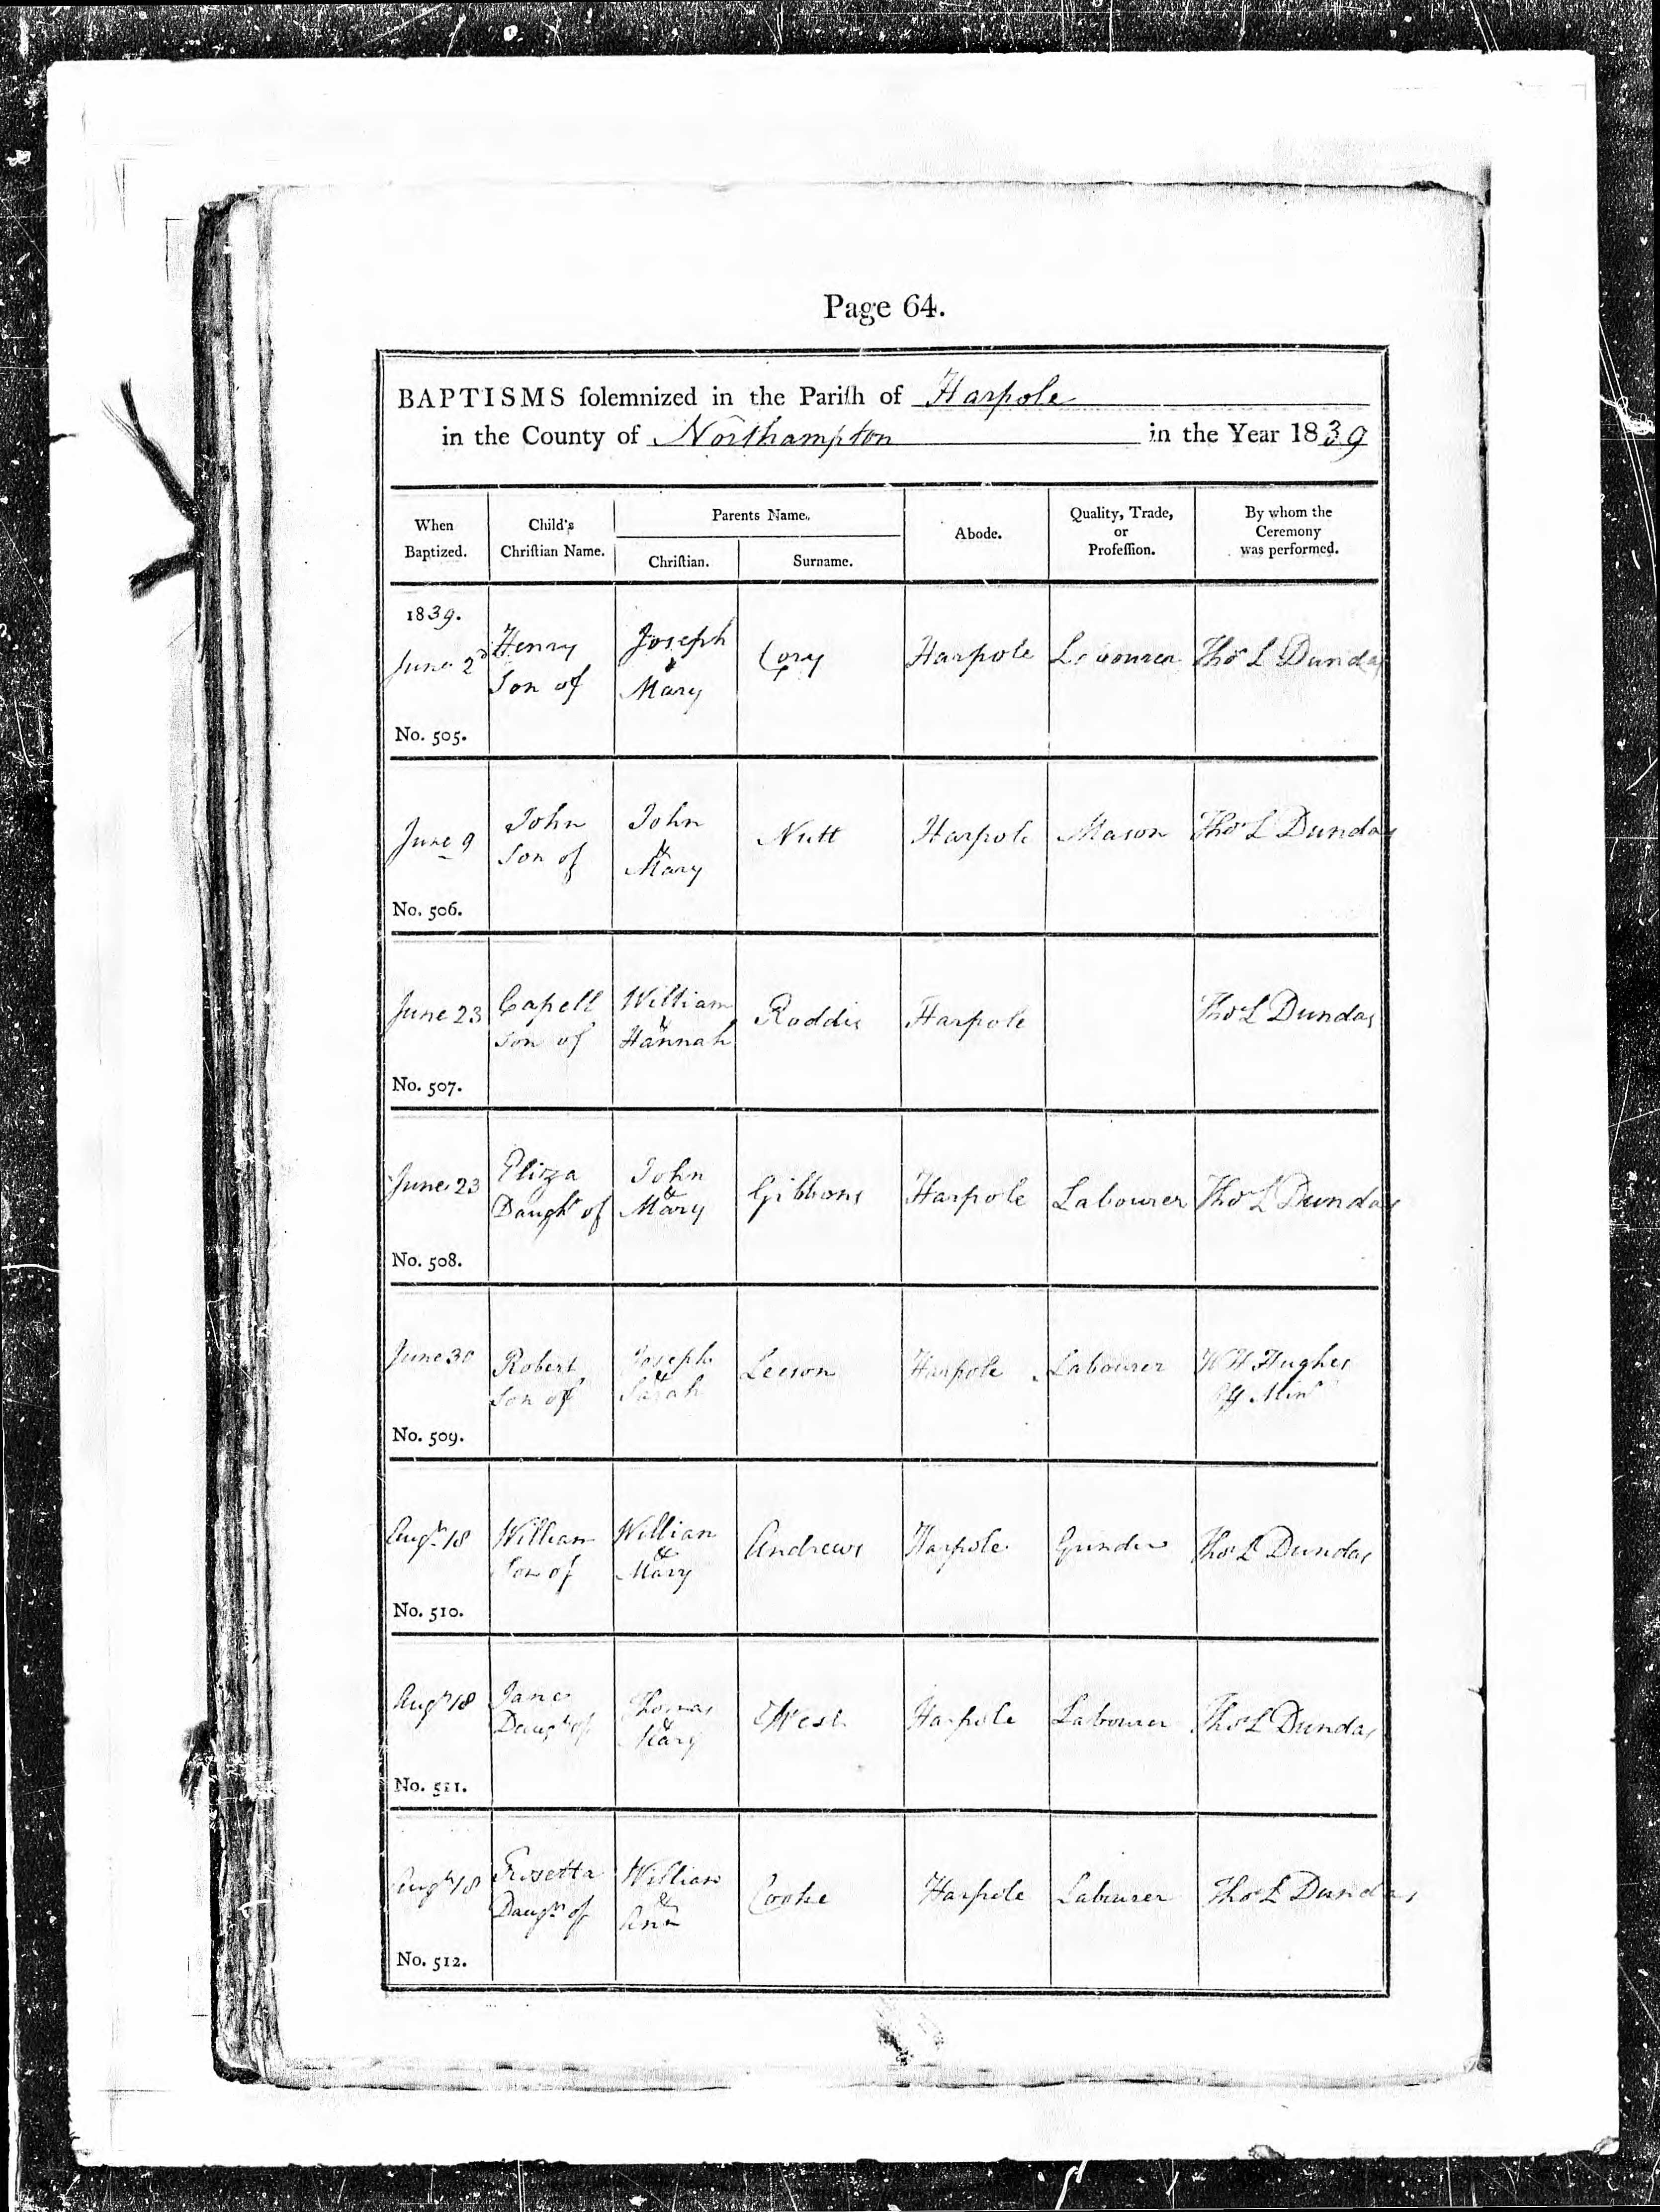 Page 64.
BAPTISMS ſolemnized in the Pariſh of Harpole
in the County of Northampton in the Year 1839
When Baptized.
Child's Chriſtian Name.
Parents Name.
Chriſtian.
Surname.
Abode.
Quality, Trade, or Profeſſion.
By whom the Ceremony was performed.
1839.
June 2d
Henry
Son of
Joseph
&
Mary
Cory
Harpole
Labourer
Thos L Dundas
No. 505.
June 9
John
Son of
John
&
Mary
Nutt
Harpole
Mason
Thos L Dundas
No. 506.
June 23
Capell
Son of
William
&
Hannah
Roddis
Harpole
Thos L Dundas
No. 507.
June 23
Eliza
Daught of
John
&
Mary
Gibbons
Harpole
Labourer
Thos L Dundas
No. 508.
June 30
Robert
Son of
Joseph
&
Sarah
Leeson
Harpole
Labourer
W H Hughes
Off Minr
No. 509.
Augt 18
William
Son of
William
&
Mary
Andrews
Harpole
Thos L Dundas
No. 510.
Augt 18
Jane
Daught of
Thomas
&
Mary
West
Harpole
Labourer
Thos L Dundas
No. 511.
Augt 18
Daught of
William
&
Ann
Cooke
Harpole
Labourer
Thos L Dundas
No. 512.